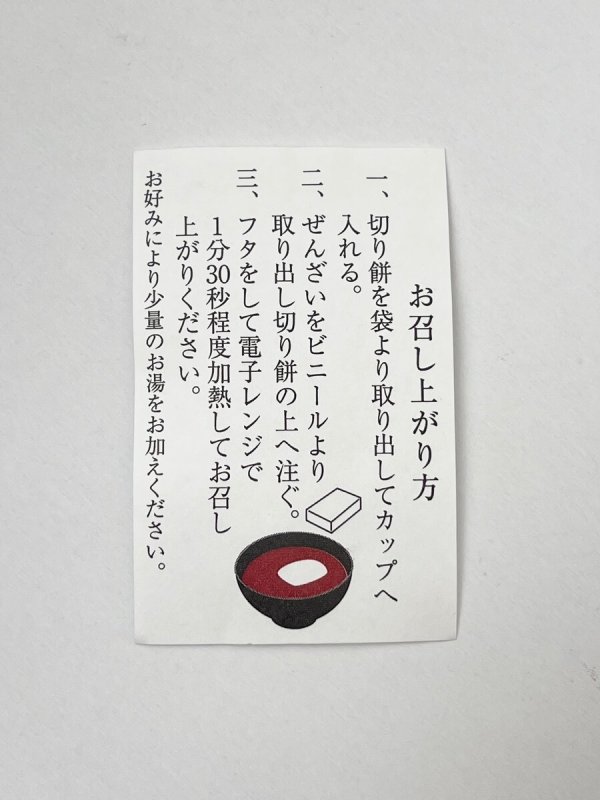 お召し上がり方
一、切り餅を袋より取り出してカップへ
入れる。
二、ぜんざいをビニールより
取り出し切り餅の上へ注ぐ。
三、フタをして電子レンジで
1分30秒程度加熱してお召し
上がりください。
お好みにより少量のお湯をお加えください。